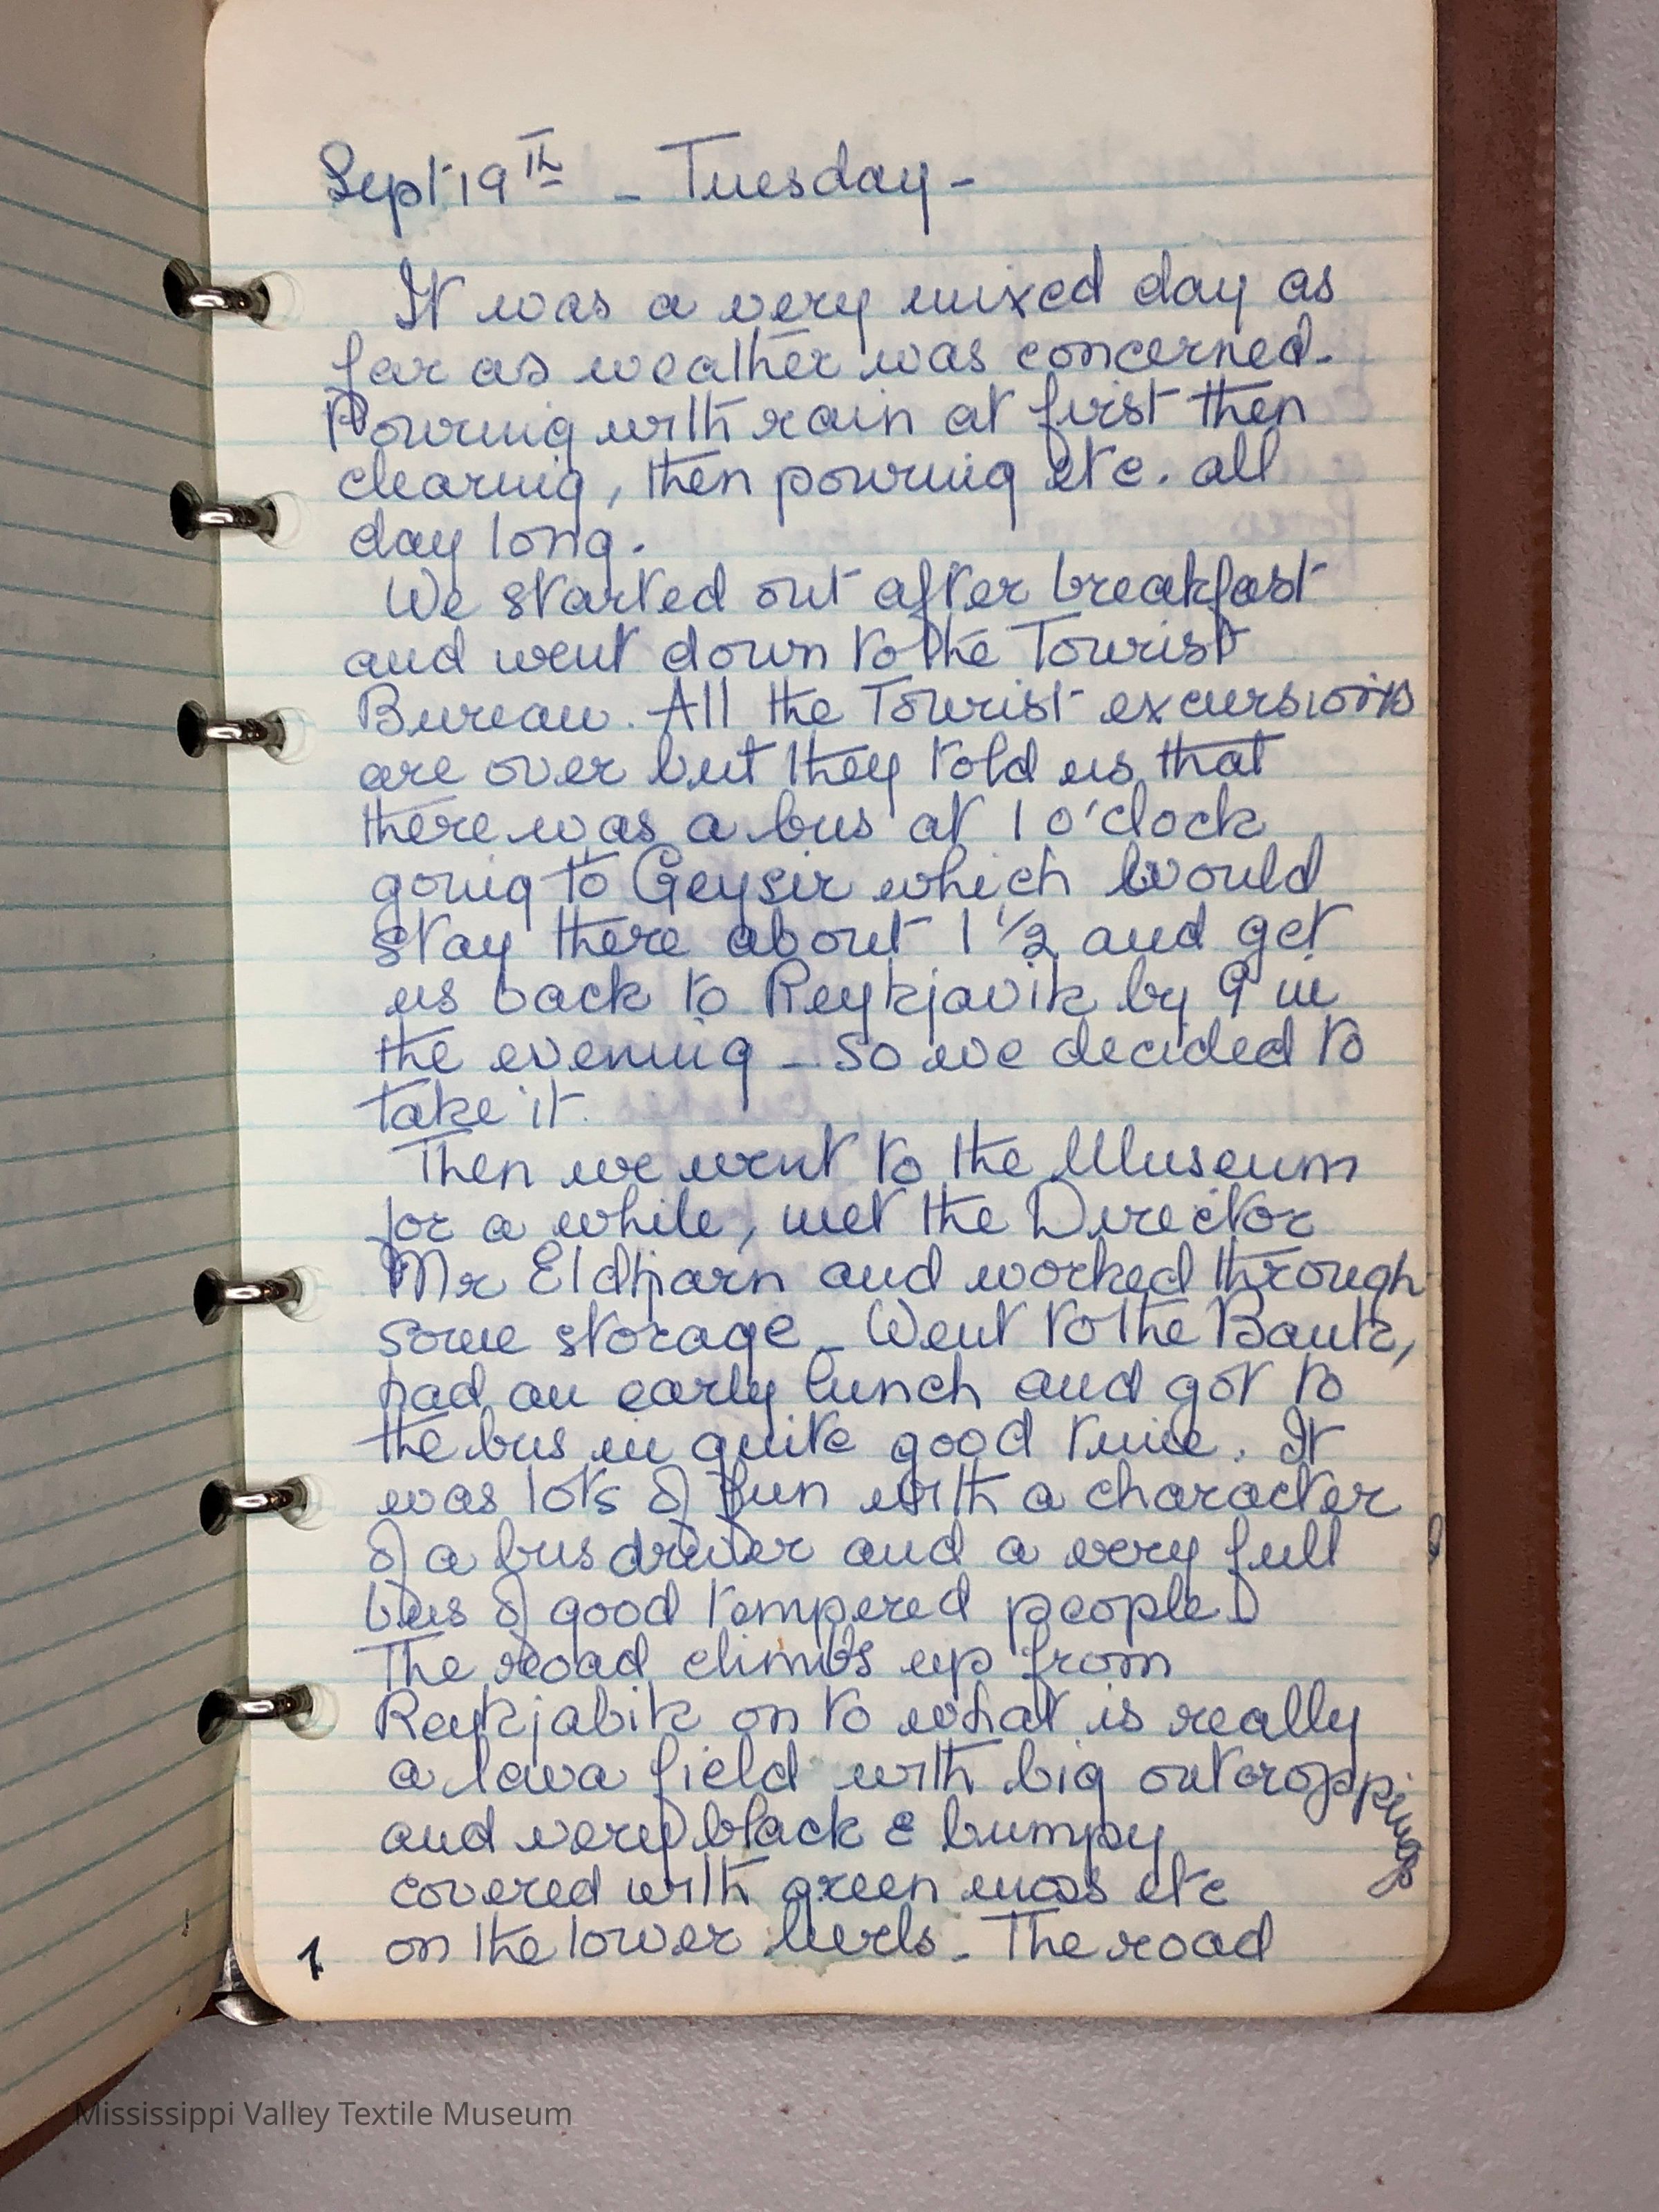 Sept 19th - Tuesday -
It was a very mixed day as
far as weather was concerned.
Pouring with rain at first then
clearing, then pouring etc. all
day long.
We started out after breakfast
and went down to the Tourist
Bureau. All the Tourist excursions
are over but they told us that
there was a bus at 1 o'clock
going to Geysir which would
stay there about 1 1/2 and get
us back to Reykjavik by 9 in
the evening - so we decided to
take it.
Then we went to the Museum
for a while, met the Director
Mr Eldjarn and worked through
some storage - Went to the Bank,
had an early lunch and got to
the bus in quite good time. It
was lots of fun with a character
of a bus driver and a very full
bus of good tempered people
The road climbs up from
Reykjabik on to what is really
a lava field with big outcroppings
and very black & bumpy
covered with green moss etc
on the lower levels - The road
1
Mississippi Valley Textile Museum